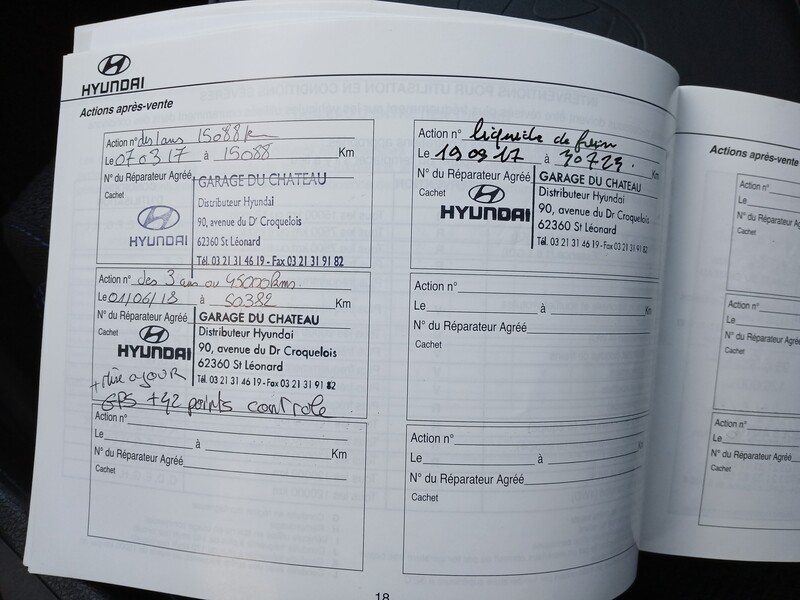 HYUNDAI
Actions après-vente
Action n° des 1 ans 15088 km
Le 07 03 17 à 15088 Km
N° du Réparateur Agréé
Cachet
GARAGE DU CHATEAU
Distributeur Hyundai
HYUNDAI
90, avenue du Dr Croquelois
62360 St Léonard
Tél. 03 21 31 46 19 - Fax 03 21 31 91 82
Action n° des 3 ans ou 45000 kms.
Le 01/06/18 à 50382 Km
N° du Réparateur Agréé
Cachet
GARAGE DU CHATEAU
Distributeur Hyundai
HYUNDAI
90, avenue du Dr Croquelois
62360 St Léonard
Tél. 03 21 31 46 19 - Fax 03 21 31 91 82
+ Mise a JOUR
GPS + 42 points controle
Action n°
Le à Km
N° du Réparateur Agréé
Cachet
Action n° liquide de frein
Le 19 09 17 à 30729. Km
N° du Réparateur Agréé
Cachet
GARAGE DU CHATEAU
Distributeur Hyundai
HYUNDAI
90, avenue du Dr Croquelois
62360 St Léonard
Tél. 03 21 31 46 19 - Fax 03 21 31 91 82
Action n°
Le à Km
N° du Réparateur Agréé
Cachet
Action n°
Le à Km
N° du Réparateur Agréé
Cachet
18
Actions après-vente
Action n°
Le
N° du Réparateur
Cachet
Action n°
Le
N° du Réparateur
Cachet
Action n°
Le
N° du Réparateur
Cachet